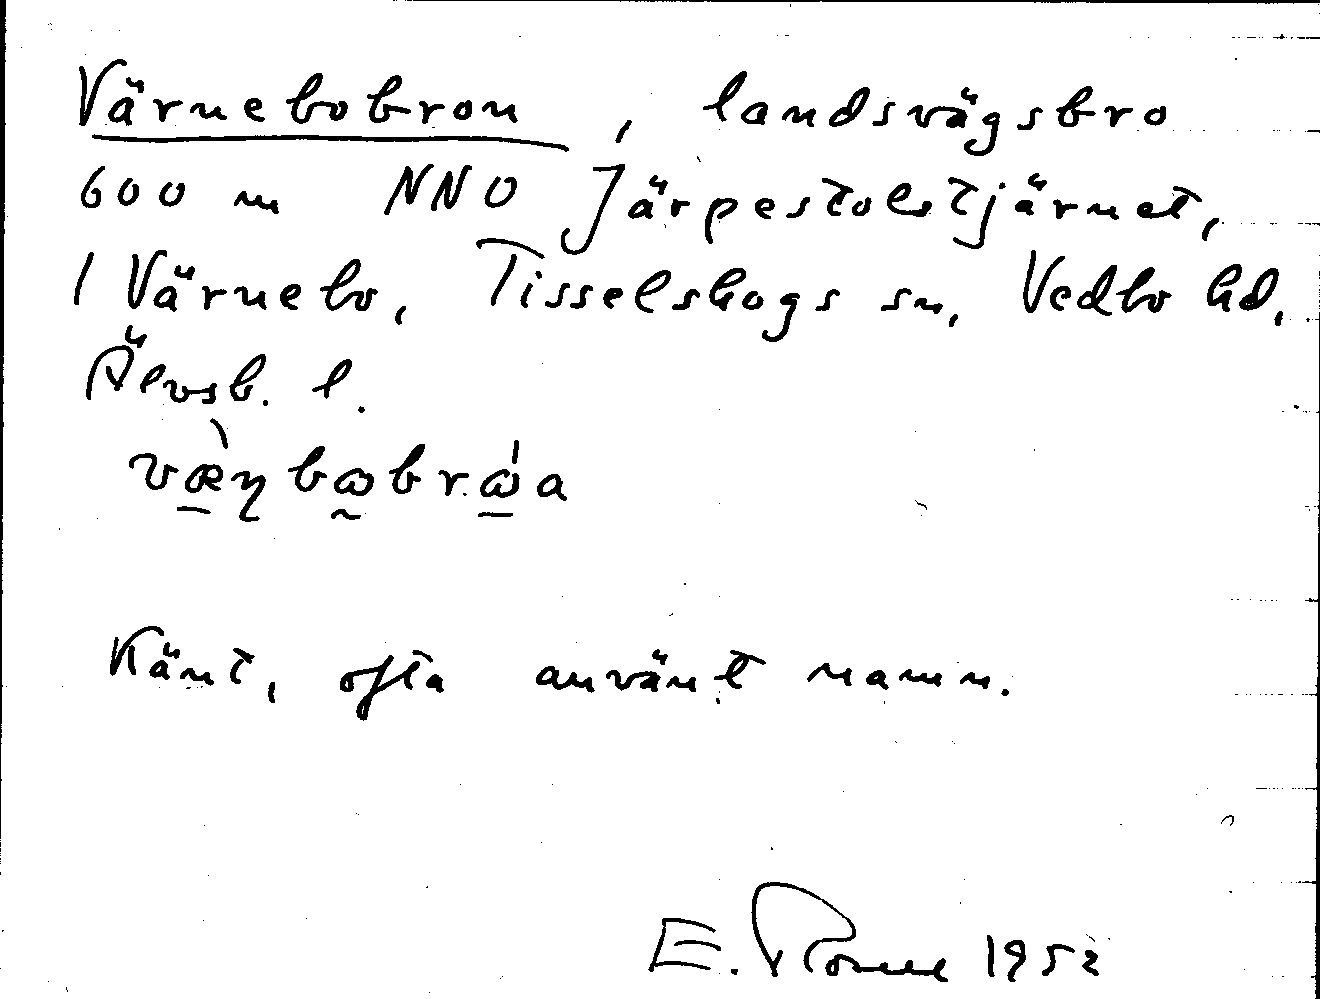 Värnebobron, landsvägsbro
600 m NNO Järpestolstjärnet,
1 Värnebo, Tisselskogs sn, Vedbo hd,
Älvsb. l.
Känt, ofta använt namn.
E. 1952